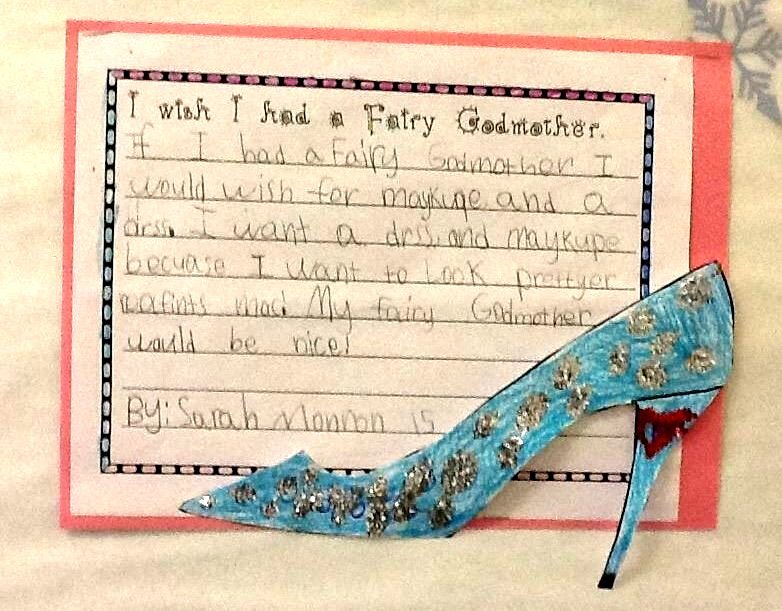 I wish I had a Fairy Godmother.
If I had a Fairy Godmother I
would wish for maykupe and a
drss. I want a drss. and maykupe
becuase I want to Look prettyer
My fairy Godmother
would be nice!
BY: Sarah Monron 15